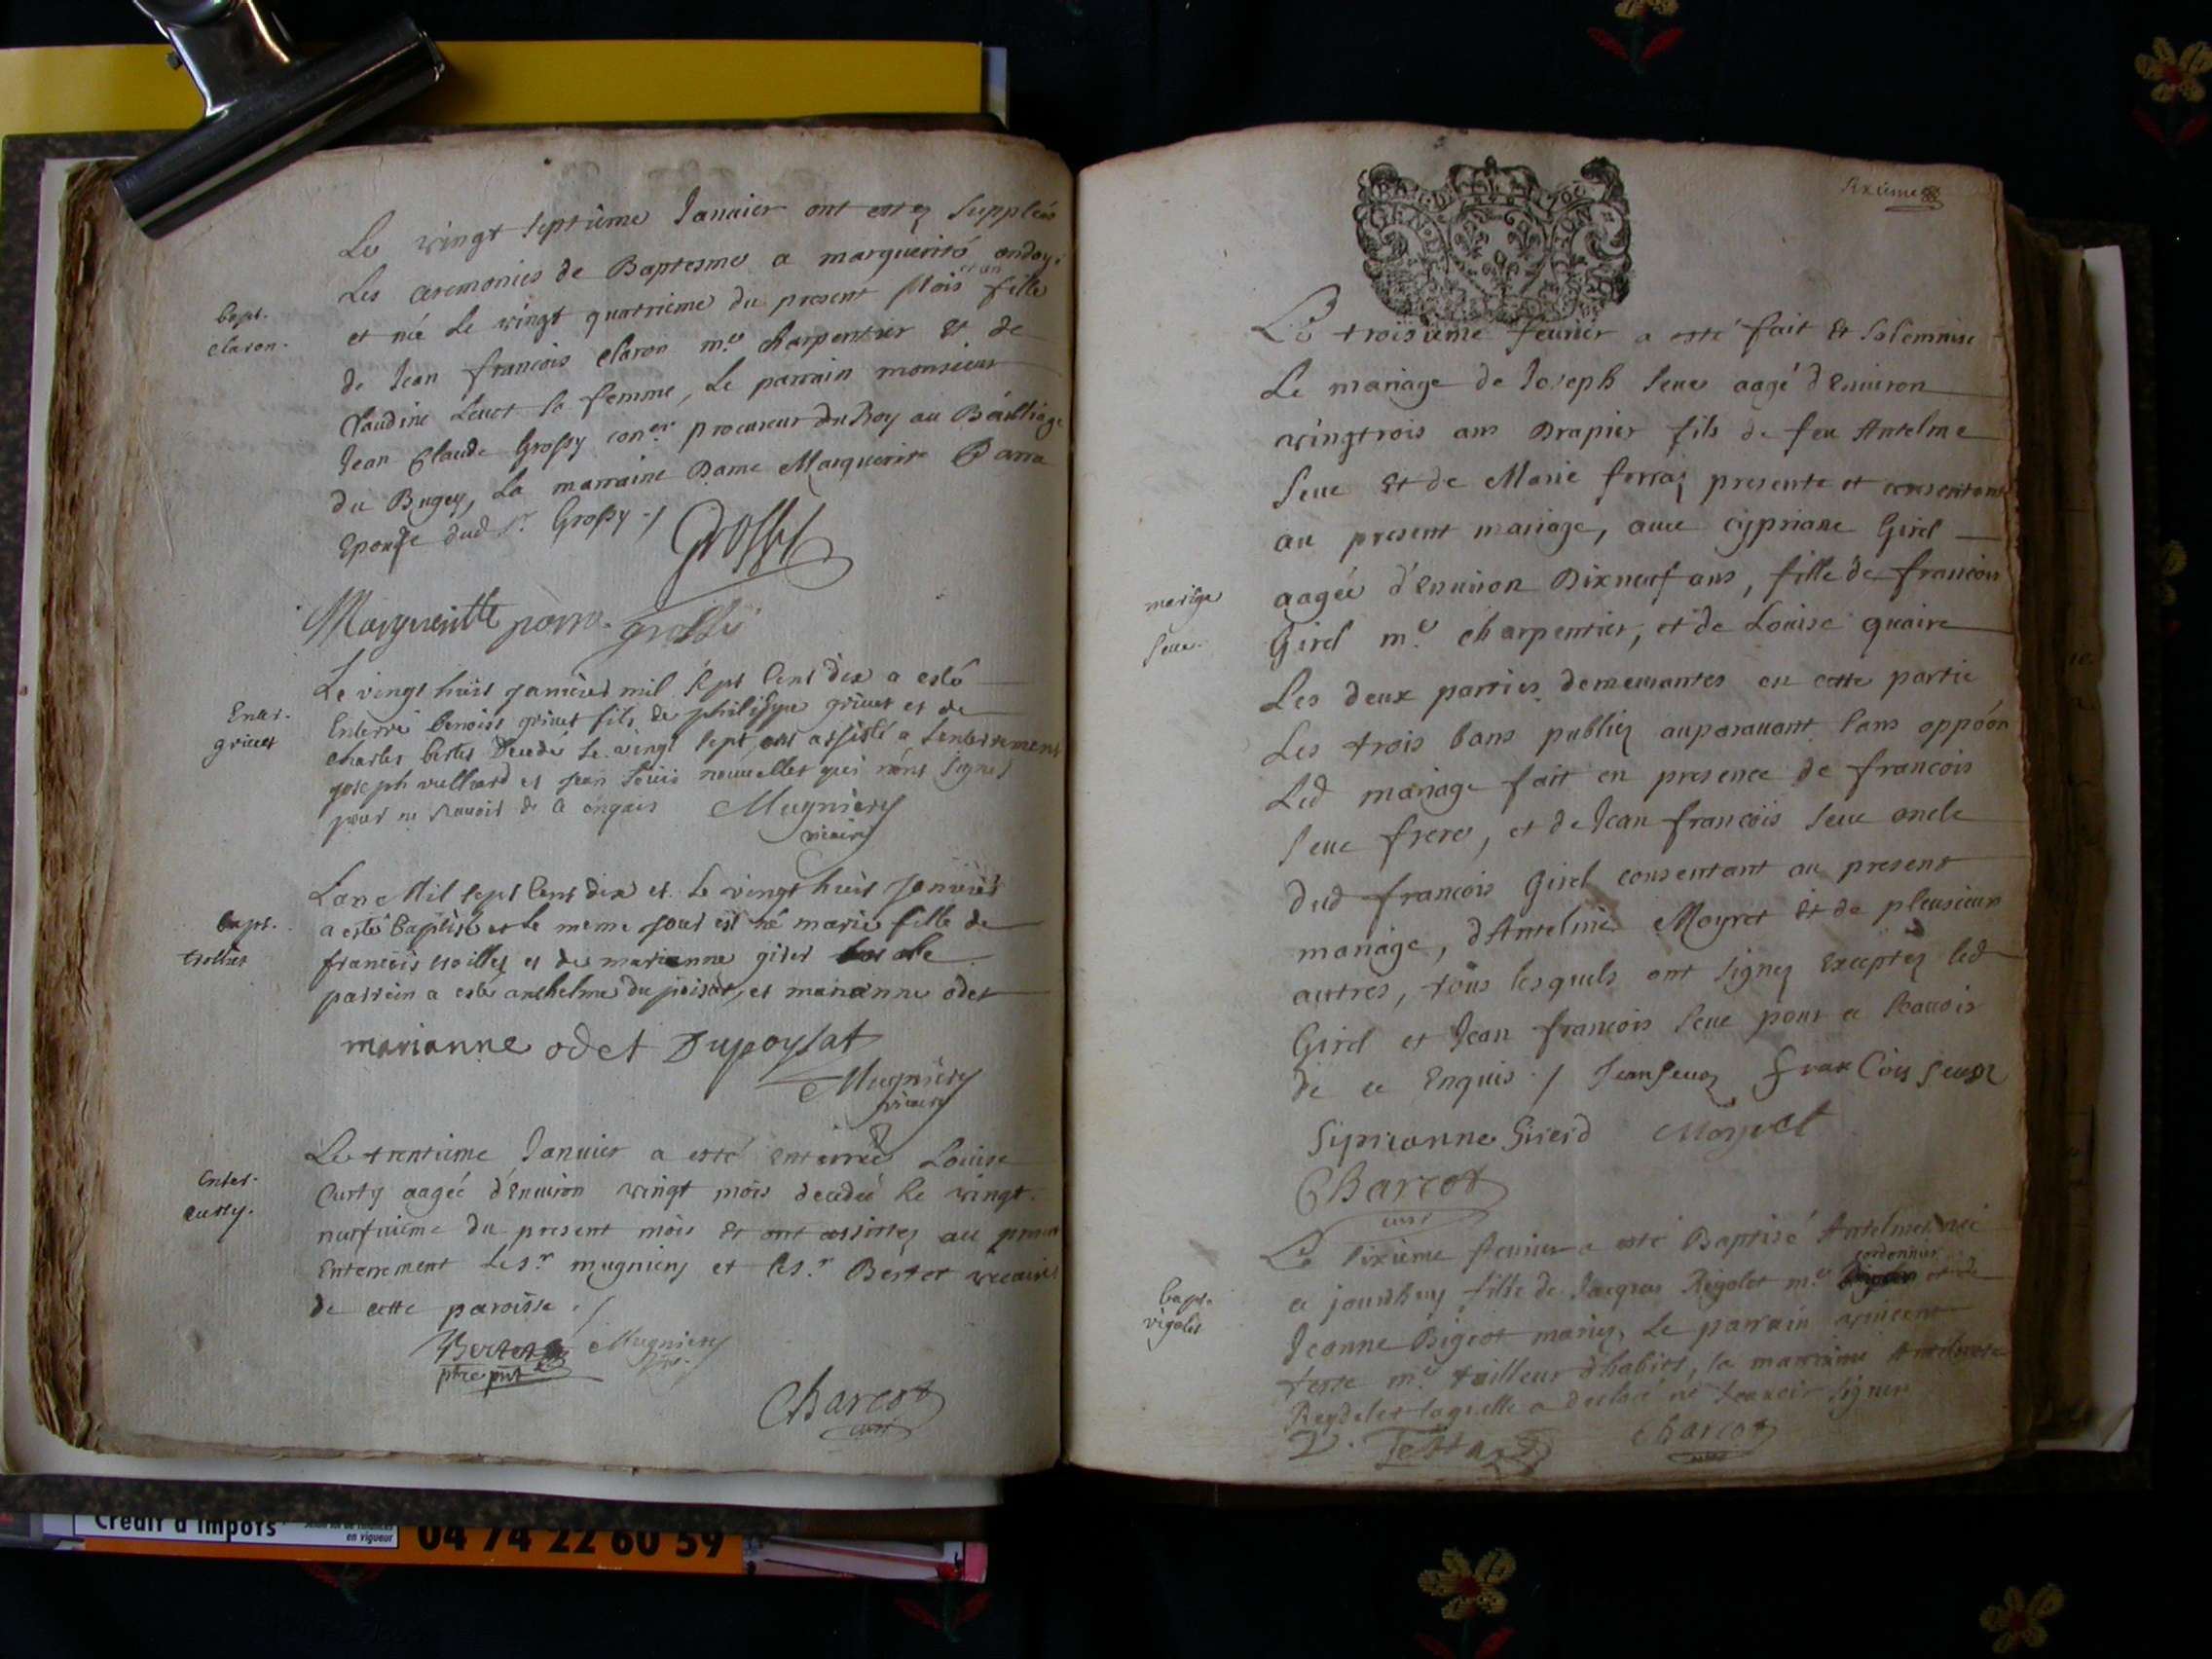 Le vingt septième Janvier ont estez suppleés
Les ceremonies de Baptesme a marguerité ondoy.
et née Le vingt quatrieme du present Mois et an fille
de Jean francois claron m.e charpentier et de
Claudine Leuet sa femme, Le parrain monsieur
Jean Claude Grossy con.er procureur du Roy au Bailliage
du Bugey, La marraine Dame Marguerite Parra
Epouse dud S.r Grossy ./
bapt.
claron.
Grossy
Margueritte parra. grossy
Le vingt huit janvier mil sept cent dix a esté
Enterré benoist griuet fils de philippe griuet et de
charles bertet Decedé le vingt sept, ont assisté a lenterrement
joseph vulliard et jean louis nouuellet qui nont signés
pour ne scauoir de ce enquis Mugniery
vicaire
Enter.
griuet
Lan Mil sept cent dix et le vingt huit janvier
a esté baptisé et le meme jour est né marie fille de
francois troillet et de marianne giret
parrein a esté anthelme du poisat, et marianne odet
bapt.
trollier
marianne odet Dupoysat
Mugniery
vicaire
Le trentième Janvier a esté enterrée Louise
Curty aagée d'Enuiron vingt mois decedée le vingt
neufuieme du present mois et ont assistez au present
Enterrement Le s.r mugniery et le s.r Bertet vicaires
de cette paroisse ./
Enter.
curty.
Bertet Mugniery
ptre pnt vic.
Charcot
curé
Sixieme
GEN. DE LYON
Le troisieme feurier a esté fait et solemnisé
Le mariage de Joseph Seue aagé d'Enuiron
vingtrois ans Drapier fils de feu Antelme
Seue et de Marie ferraz presente et consentant
au present mariage, auec cypriane Girel
aagée d'Enuiron Dixneuf ans, fille de francois
Girel m.e charpentier, et de Louise quaire
Les deux parties demeurantes en cette partie
Les trois bans publiez auparauant sans oppoon
Led mariage fait en presence de francois
Seue frere, et de Jean francois Seue oncle
dud francois Girel consentant au present
mariage, d'Antelme Moyret et de plusieurs
autres, tous lesquels ont signez Exceptez led
Girel et Jean francois Seue pour ce scauoir
de ce Enquis ./ Jean Seue franCois Seue
mariage
Seue.
Siprianne Girerd Moyret
Charcot
curé
Le sixieme feurier a esté Baptisé Antelme née
cordonnier
ce jourdhuy fille de Jacques Rigolet m.e et de
Jeanne Bigeot mariez, Le parrain vincent
teste m.e tailleur d'habits, la marraine
Reydelet laquelle a declaré ne scauoir signer
bapt.
rigolet
V. Testa Charcot
curé
Crédit d'impôts
en vigueur
04 74 22 60 59